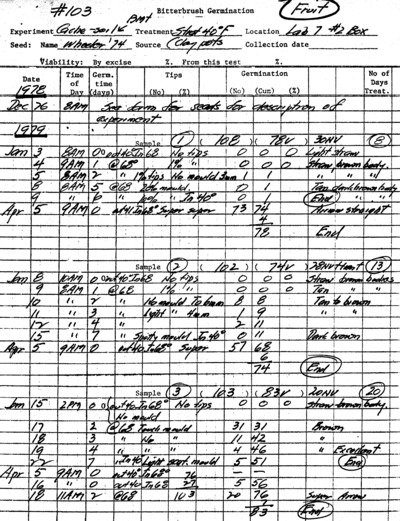 #103 Bitterbrush Germination Fruit
Experiment Cache-soil Treatment 40°F Location Lab 7 #2 Box
Seed: Name Wheeler '74 Source Clay pots Collection date
Viability: By excise %. From this test %.
Date Time of Day Germ. time (days) Tips (No) (%) Germination (No) (Cum) (%) No of Days Treat.
1978
Dec 26 8AM See form for seeds for description of
experiment
1979
Sample 1 (108) (78V) 30NV 8
Jan 3 8AM 0 out 40° In 68 No tips 0 0 0 Light straw
4 9AM 1 @68 1% " 0 0 0 Straw, brown body
5 8AM 2 " 1% tips No mould 3mm 1 1
8 8AM 5 @68 20% mould 0 1 Tan dark brown body
9 " 6 In 40° 0 End
Apr 5 9AM 0 out 40 In 68° Super super 73 74
4
78 End
Sample 2 (102) (74V) 28NV 13
Jan 8 10AM 0 out 40° In 68° No tips 0 0 0 Straw brown bodies
9 8AM 1 @68 1% " 0 0 0 Tan "
10 " 2 " No mould To 6mm 8 8 Tan to brown
11 " 3 " Light " 4mm 1 9 " "
12 " 4 " 2 11
15 " 7 " Spotty mould In 40° 0 11 Dark brown
Apr 5 9AM 0 out 40 In 68° Super 57 68
6
74 End
Sample 3 (103) (83V) 20NV 20
Jan 15 2PM 0 out 40° In 68° No tips 0 0 0 Straw brown body
No mould
17 2 @68 Touch mould 31 31 Brown
18 3 " No " 11 42 "
19 4 " " " 4 46 " Excellent
22 7 " In 40° Light scat. mould 5 51 End
Apr 5 9AM 0 out 40° In 68° 76
16 0 out 40 In 68° 27 5 56
18 11AM 2 @68 103 20 76 Super
83 End